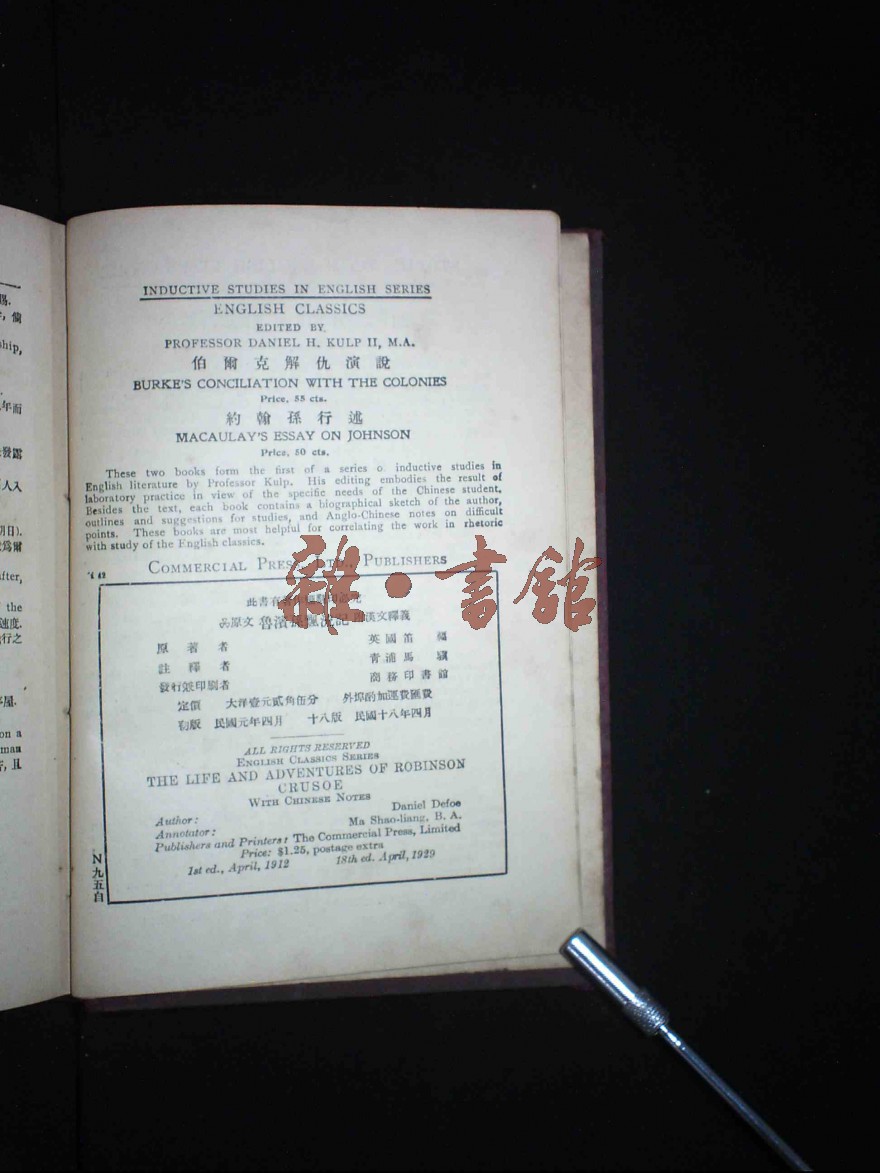 賜.
ship,
年而
發露
人入
明日).
after,
the
速度.
行之
屋.
on a
man
INDUCTIVE STUDIES IN ENGLISH SERIES
ENGLISH CLASSICS
EDITED BY
PROFESSOR DANIEL H. KULP II, M.A.
伯爾克解仇演說
BURKE'S CONCILIATION WITH THE COLONIES
Price, 55 cts.
約翰孫行述
MACAULAY'S ESSAY ON JOHNSON
Price, 50 cts.
These two books form the first of a series o inductive studies in
English literature by Professor Kulp. His editing embodies the result of
laboratory practice in view of the specific needs of the Chinese student.
Besides the text, each book contains a biographical sketch of the author,
outlines and suggestions for studies, and Anglo-Chinese notes on difficult
points. These books are most helpful for correlating the work in rhetoric
with study of the English classics.
COMMERCIAL PRESS, LTD., PUBLISHERS
雜·書館
此書有著作權翻印必究
原文 魯濱孫飄流記 附漢文釋義
原著者 英國笛福
註釋者 青浦馬
發行兼印刷者 商務印書館
定價 大洋壹元貳角伍分 外埠酌加運費匯費
初版 民國元年四月 十八版 民國十八年四月
ALL RIGHTS RESERVED
ENGLISH CLASSICS SERIES
THE LIFE AND ADVENTURES OF ROBINSON
CRUSOE
WITH CHINESE NOTES
Author: Daniel Defoe
Annotator: Ma Shao-liang, B. A.
Publishers and Printers: The Commercial Press, Limited
Price: $1.25, postage extra
1st ed., April, 1912 18th ed. April, 1929
N九五自